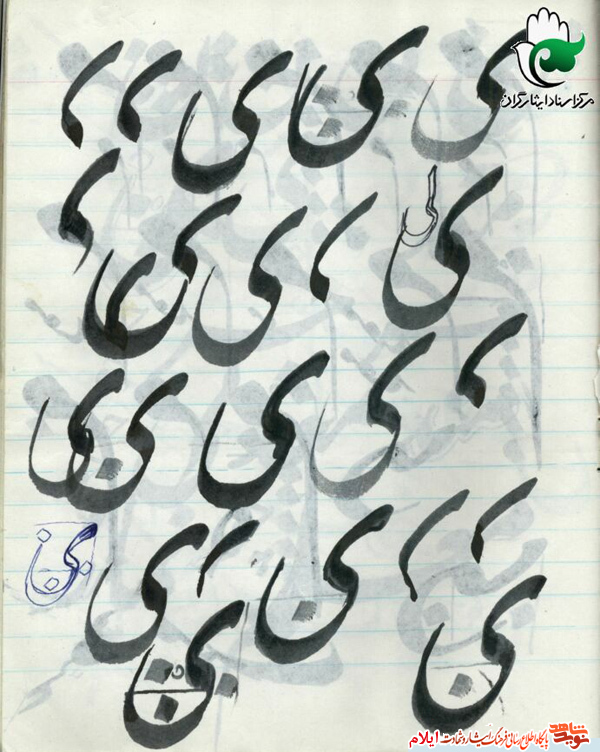 مرکز اسناد ایثارگران
ی ی ی
ی ی ی ی ی
ی ی ی ی
ی ی
ی ی ی
نوید شاهد پایگاه اطلاع رسانی فرهنگ ایثار و شهادت ایلام